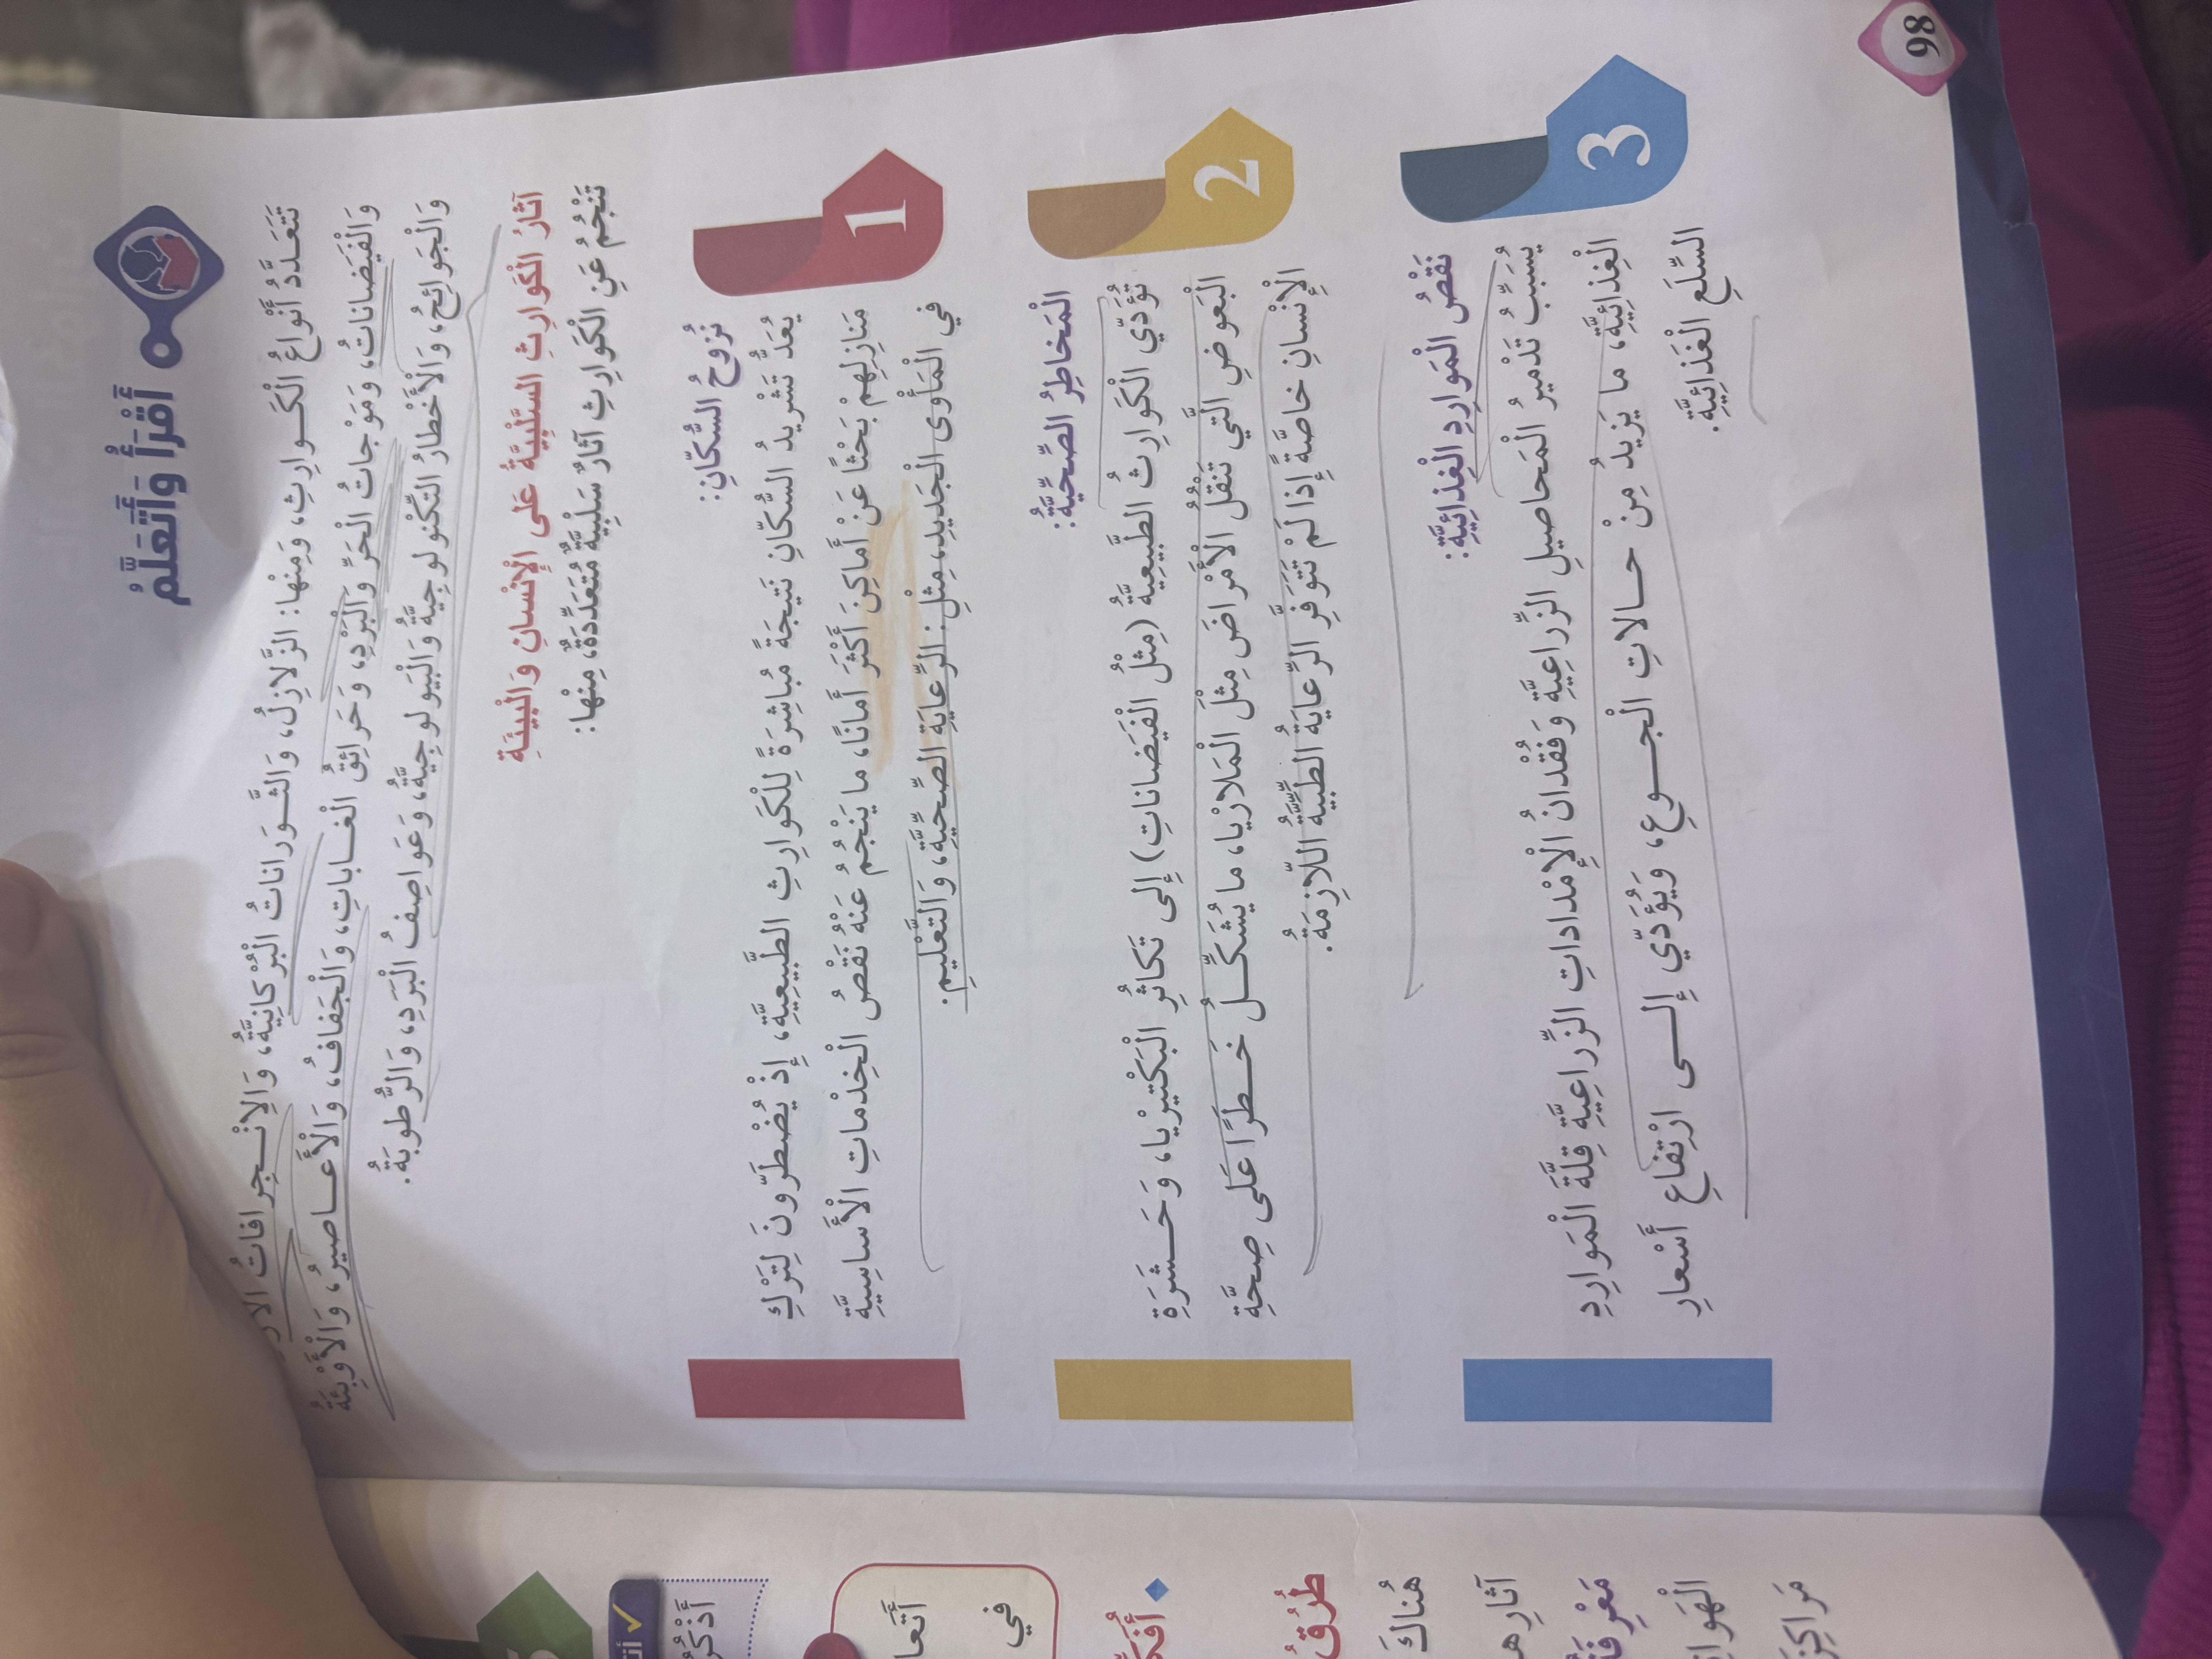 أَقْرَأُ وَأَتَعَلَّمُ
تَتَعَدَّدُ أَنْواعُ الْكَوارِثِ، وَمِنْها: الزَّلازِلُ، وَالثَّوَرَاناتُ الْبُرْكانِيَّةُ، وَالِانْجِرافاتُ
وَالْفَيَضاناتُ، وَمَوْجاتُ الْحَرِّ وَالْبَرْدِ، وَحَرائِقُ الْغاباتِ، وَالْجَفافُ، وَالْأَعاصيرُ، وَالْأَوْبِئَةُ
وَالْجَوائِحُ، وَالْأَخْطارُ التِّكْنولوجِيَّةُ وَالْبَيولوجِيَّةُ، وَعَواصِفُ الْبَرَدِ، وَالرُّطوبَةُ.
آثارُ الْكَوارِثِ السَّلْبِيَّةُ عَلى الْإِنْسانِ وَالْبيئَةِ
تَنْجُمُ عَنِ الْكَوارِثِ آثارٌ سَلْبِيَّةٌ مُتَعَدِّدَةٌ، مِنْها:
1
نُزوحُ السُّكّانِ:
يُعَدُّ تَشْريدُ السُّكّانِ نَتيجَةً مُباشِرَةً لِلْكَوارِثِ الطَّبيعِيَّةِ، إِذْ يُضْطَرّونَ لِتَرْكِ
مَنازِلِهِمْ بَحْثًا عَنْ أَماكِنَ أَكْثَرَ أَمانًا، ما يَنْجُمُ عَنْهُ نَقْصُ الْخِدْماتِ الْأَساسِيَّةِ
في الْمَأْوى الْجَديدِ، مِثْلِ: الرِّعايَةِ الصِّحِّيَّةِ، وَالتَّعْليمِ.
2
الْمَخاطِرُ الصِّحِّيَّةُ:
تُؤَدّي الْكَوارِثُ الطَّبيعِيَّةُ (مِثْلُ الْفَيَضاناتِ) إِلى تَكاثُرِ الْبَكْتيرْيا، وَحَشَرَةِ
الْبَعوضِ الَّتي تَنْقُلُ الْأَمْراضَ مِثْلَ الْمَلارْيا، ما يُشَكِّلُ خَطَرًا عَلى صِحَّةِ
الْإِنْسانِ خاصَّةً إِذا لَمْ تَتَوَفَّرِ الرِّعايَةُ الطِّبِّيَّةُ اللّازِمَةُ.
3
نَقْصُ الْمَوارِدِ الْغِذائِيَّةِ:
يُسَبِّبُ تَدْميرُ الْمَحاصيلِ الزِّراعِيَّةِ وَفُقْدانُ الْإِمْداداتِ الزِّراعِيَّةِ قِلَّةَ الْمَوارِدِ
الْغِذائِيَّةِ، ما يَزيدُ مِنْ حالاتِ الْجوعِ، وَيُؤَدّي إِلى ارْتِفاعِ أَسْعارِ
السِّلَعِ الْغَذائِيَّةِ.
98
في
طُرُقُ
هُناكَ